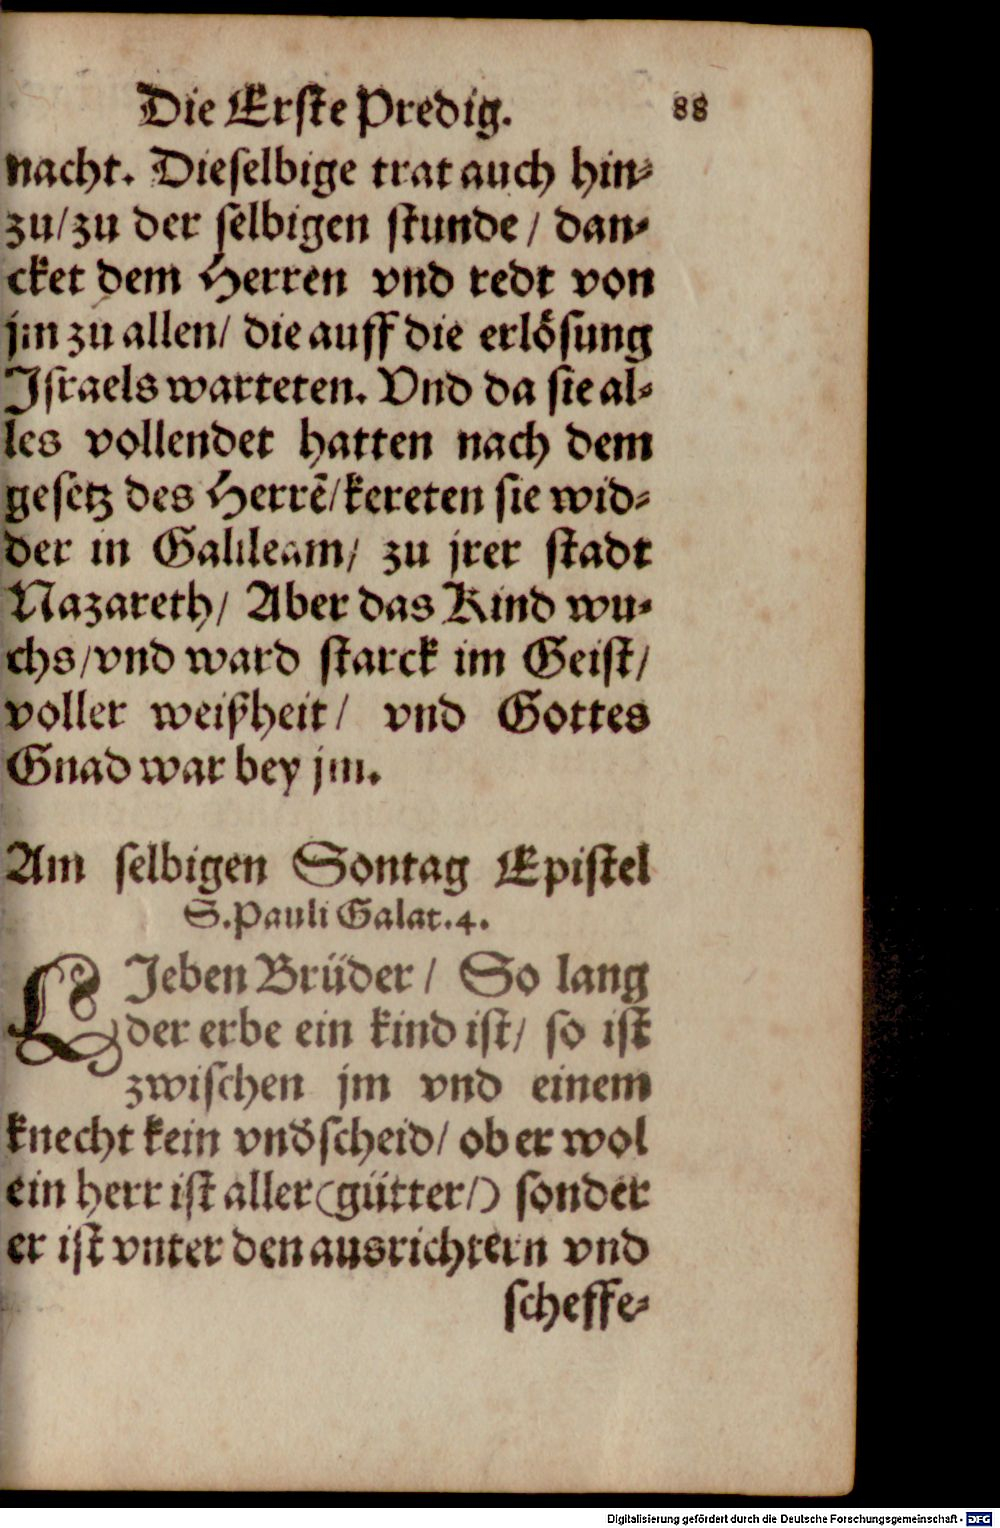 Die Erste Predig. 88
nacht. Dieselbige trat auch hin⸗
zu/zu der selbigen stunde / dan⸗
cket dem Herren vnd redt von
jm zu allen/ die auff die erlösung
Israels warteten. Vnd da sie al⸗
les vollendet hatten nach dem
gesetz des Herrẽ/kereten sie wid⸗
der in Galileam/ zu jrer stadt
Nazareth/ Aber das Kind wu⸗
chs/vnd ward starck im Geist/
voller weißheit/ vnd Gottes
Gnad war bey jm.
Am selbigen Sontag Epistel
S. Pauli Galat. 4.
LIeben Brüder / So lang
der erbe ein kind ist/ so ist
zwischen jm vnd einem
knecht kein vnd̕scheid/ ob er wol
ein herr ist aller (gütter/) sonder
er ist vnter den ausrichtern vnd
scheffe⸗
Digitalisierung gefördert durch die Deutsche Forschungsgemeinschaft - DFG